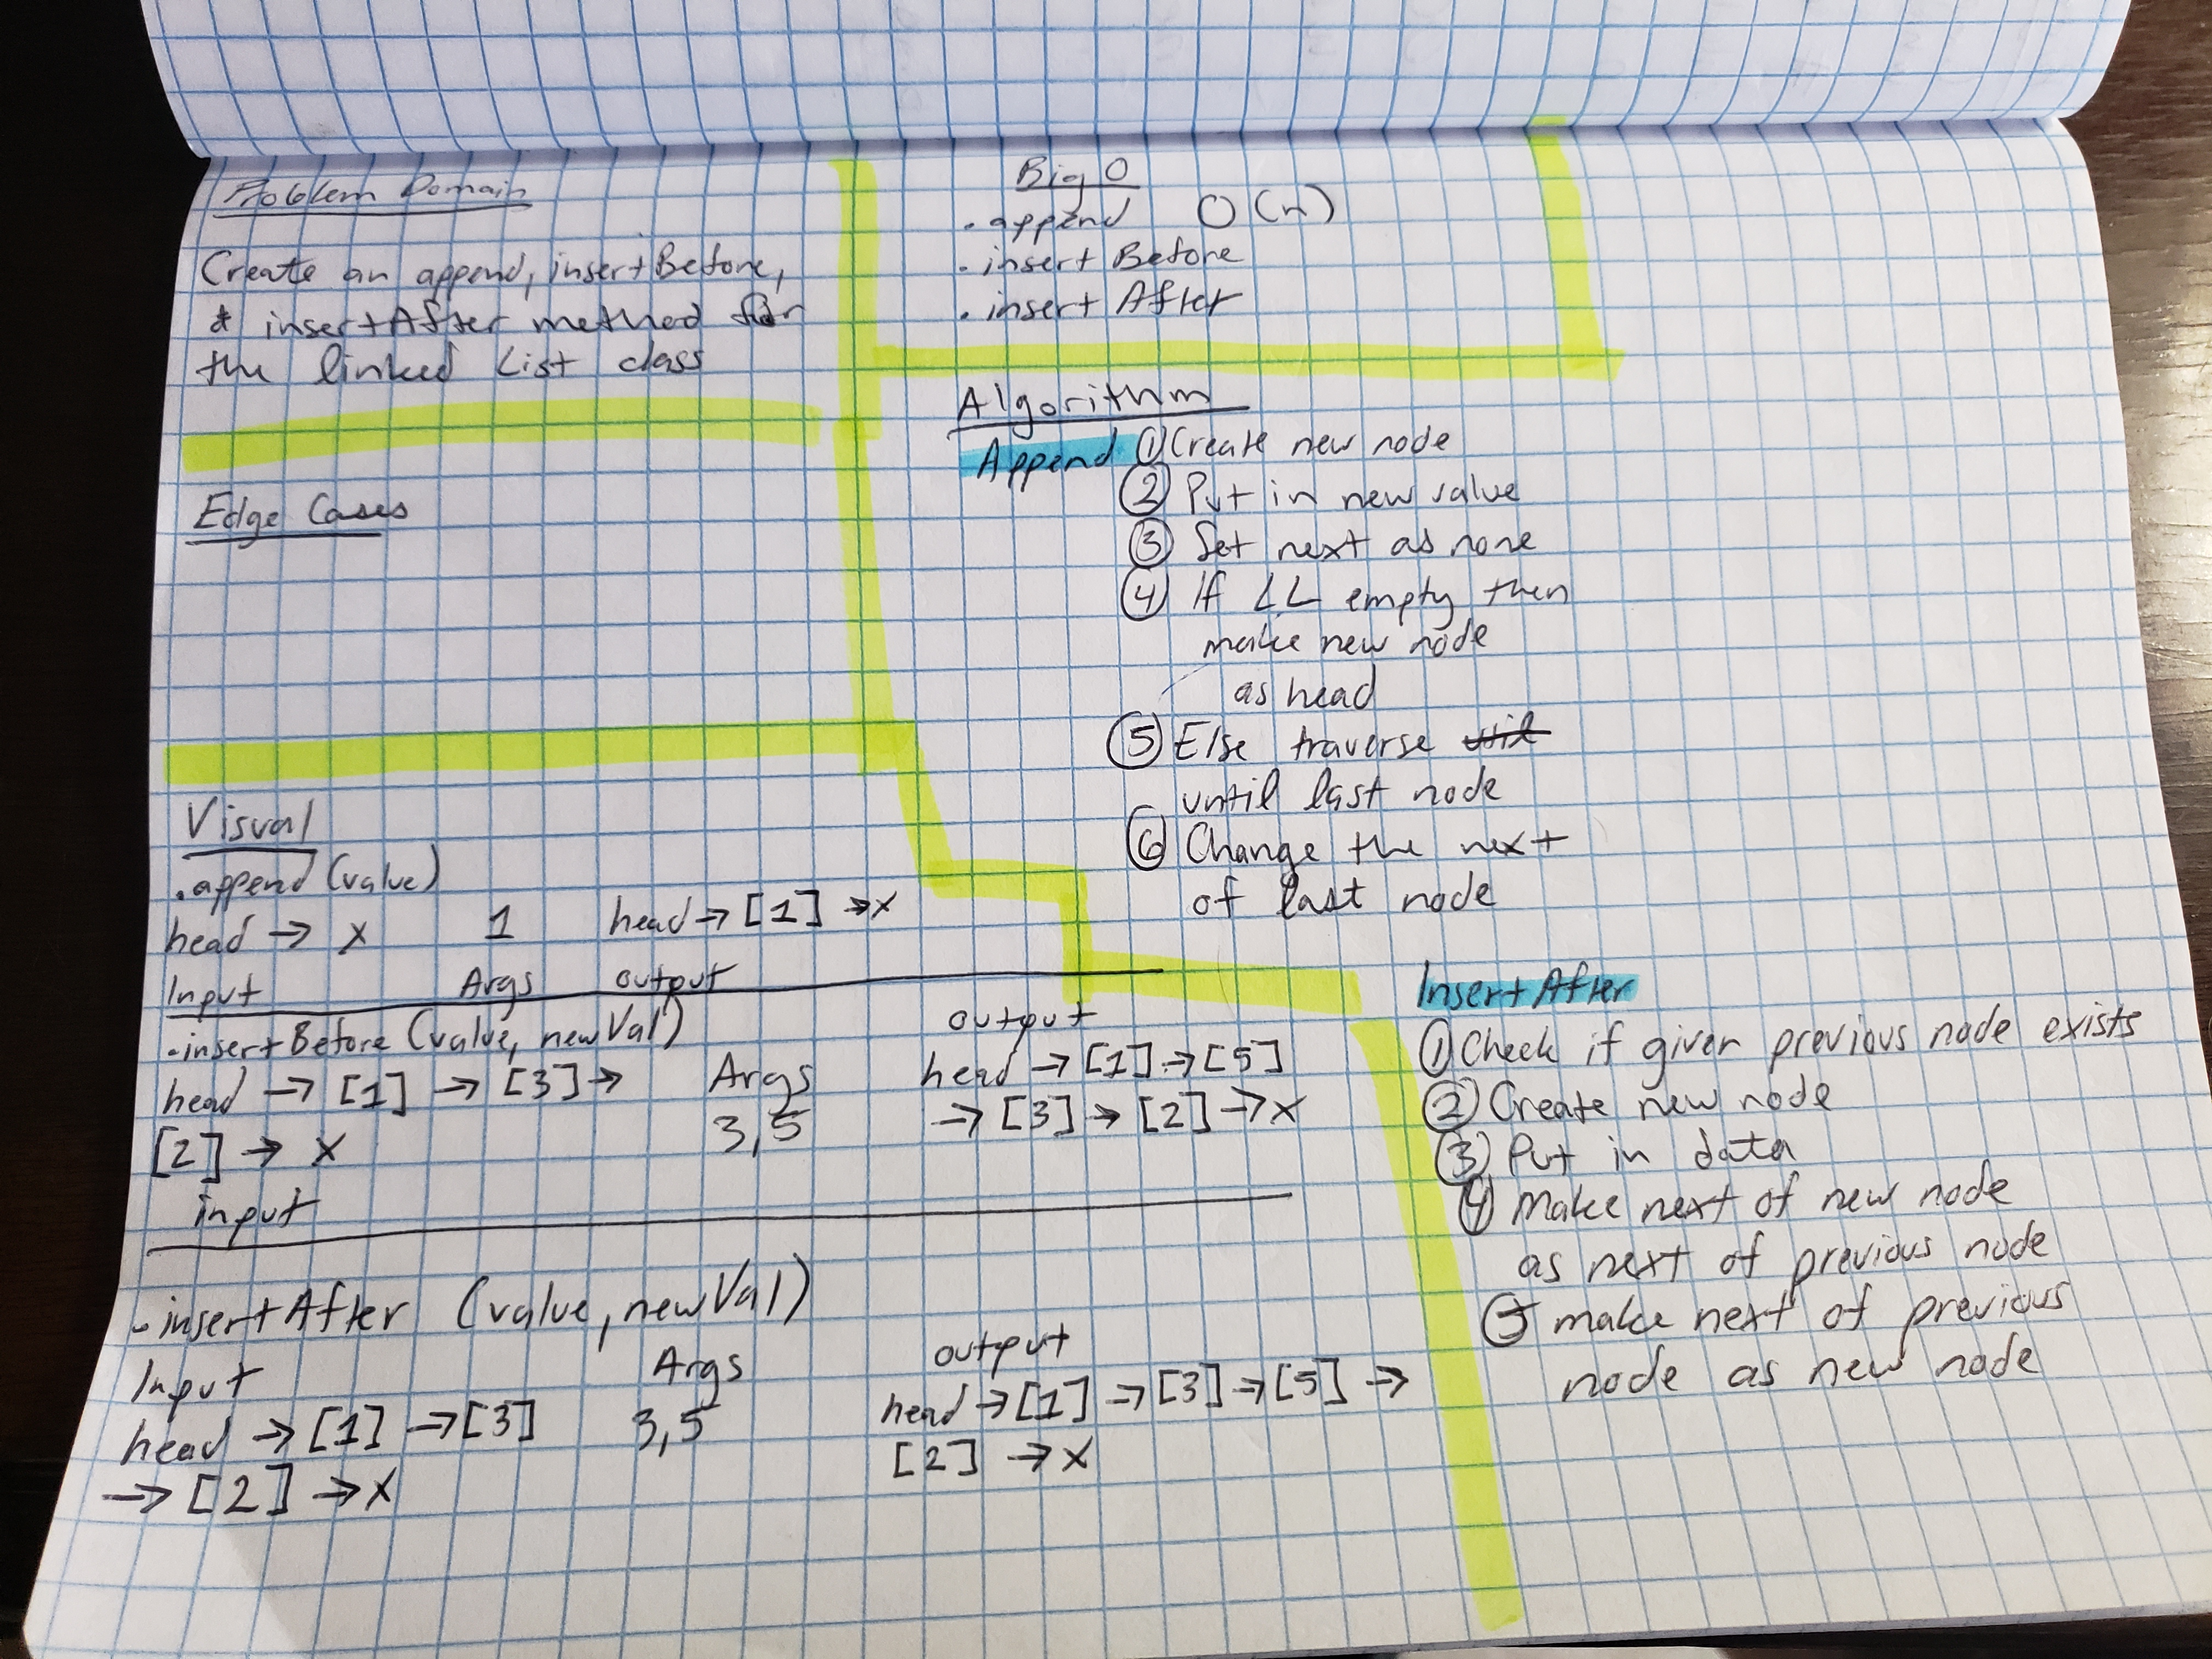 Problem Domain
Create an append, insertBefore,
& insertAfter method for
the linked List class
Edge Cases
Visual
.append (value)
head → x 1 head → [1] → x
Input Args output
.insertBefore (value, newVal)
head → [1] → [3] →
[2] → x
input
Args
3,5
output
head → [1] → [5]
→ [3] → [2] → x
.insertAfter (value, newVal)
Input
head → [1] → [3]
→ [2] → x
Args
3,5
output
head → [1] → [3] → [5] →
[2] → x
Big O
.append O(n)
.insert Before
.insert After
Algorithm
Append ① Create new node
② Put in new value
③ Set next as none
④ If LL empty then
make new node
as head
⑤ Else traverse
until last node
⑥ Change the next
of last node
Insert After
① Check if given previous node exists
② Create new node
③ Put in data
④ Make next of new node
as next of previous node
⑤ make next of previous
node as new node